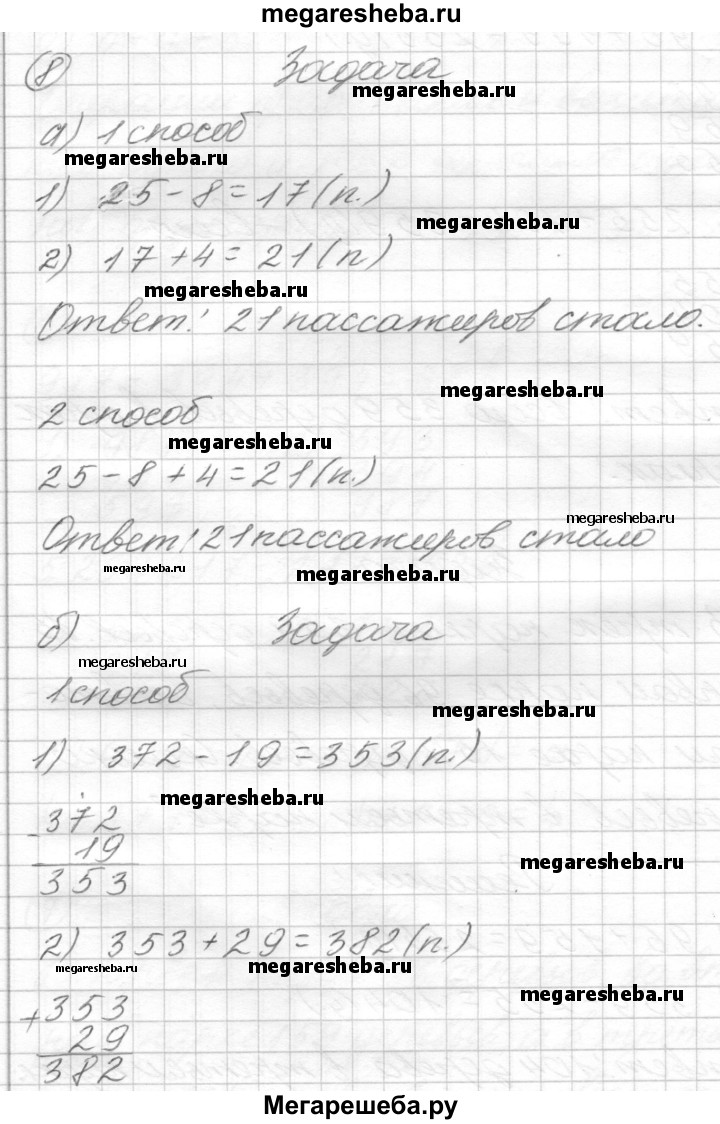 megaresheba.ru
8 Задача
megaresheba.ru
а) 1 способ
megaresheba.ru
1) 25 - 8 = 17 (п.)
megaresheba.ru
2) 17 + 4 = 21 (п)
megaresheba.ru
Ответ: 21 пассажиров стало.
megaresheba.ru
2 способ
megaresheba.ru
25 - 8 + 4 = 21 (п.)
megaresheba.ru
Ответ: 21 пассажиров стало
megaresheba.ru
megaresheba.ru
б) Задача
megaresheba.ru
1 способ
megaresheba.ru
1) 372 - 19 = 353 (п.)
megaresheba.ru
- 372
19
megaresheba.ru
353
2) 353 + 29 = 382 (п.)
megaresheba.ru megaresheba.ru
megaresheba.ru
+ 353
29
382
Мегарешеба.ру